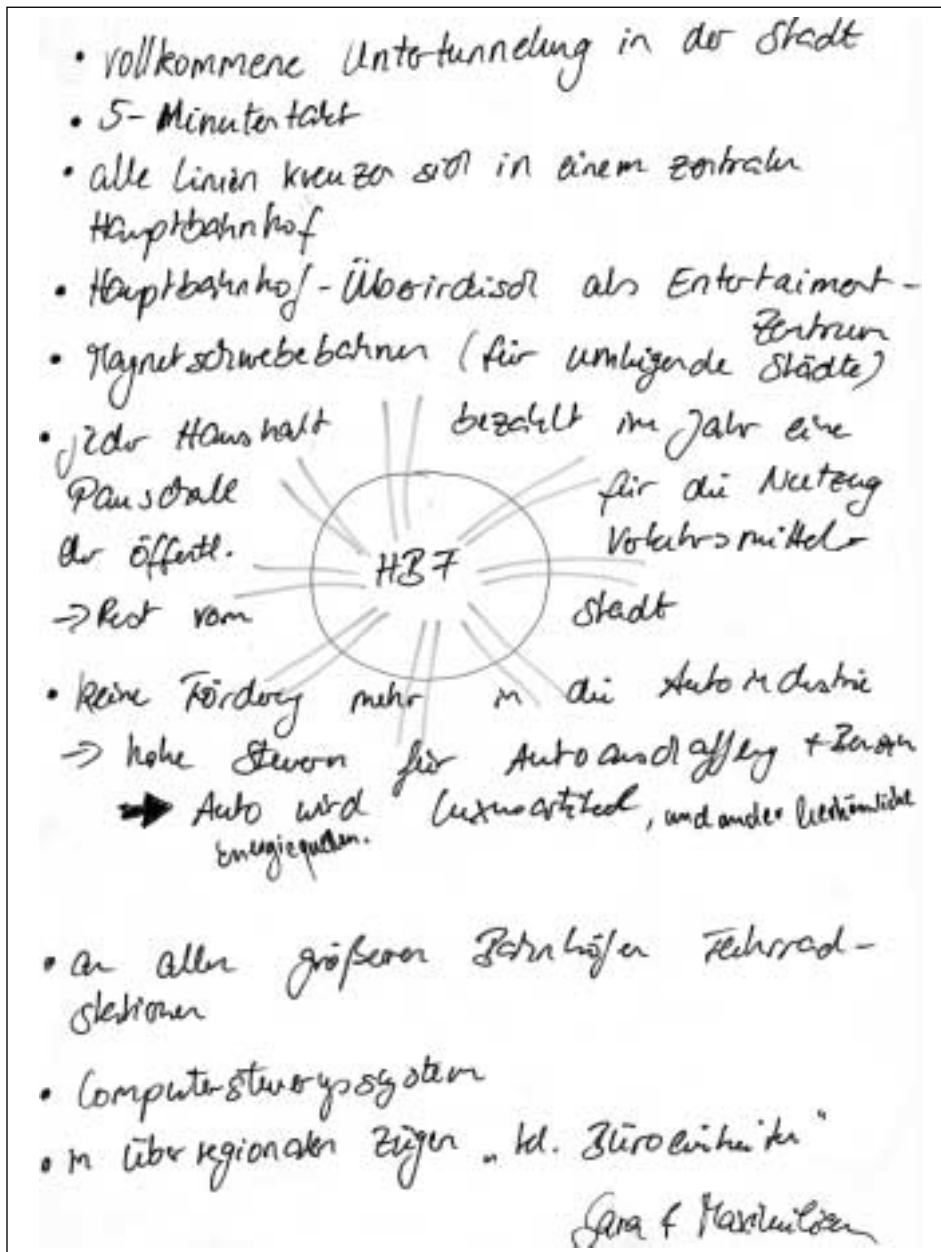 • vollkommene Untertunnelung in der Stadt
• 5-Minutentakt
• alle Linien kreuzen sich in einem zentralen
Hauptbahnhof
• Hauptbahnhof-Überirdisch als Entertaiment-
Zentrum
• Magnetschwebebahnen (für umliegende Städte)
• jeder Haushalt bezahlt im Jahr eine
Pauschale für die Nutzung
der öffentl. Verkehrsmittel
HBF
→ Rest vom Stadt
• keine Förderung mehr in die Autoindustrie
→ hohe Steuern für Autoanschaffung + Benzin
➔ Auto wird Luxusartikel, und andere herkömmliche
Energiequellen.
• an allen größeren Bahnhöfen Fahrrad-
stationen
• Computersteuerungssystem
• in überregionalen Zügen „kl. Büroeinheiten"
Sara & Maximilian